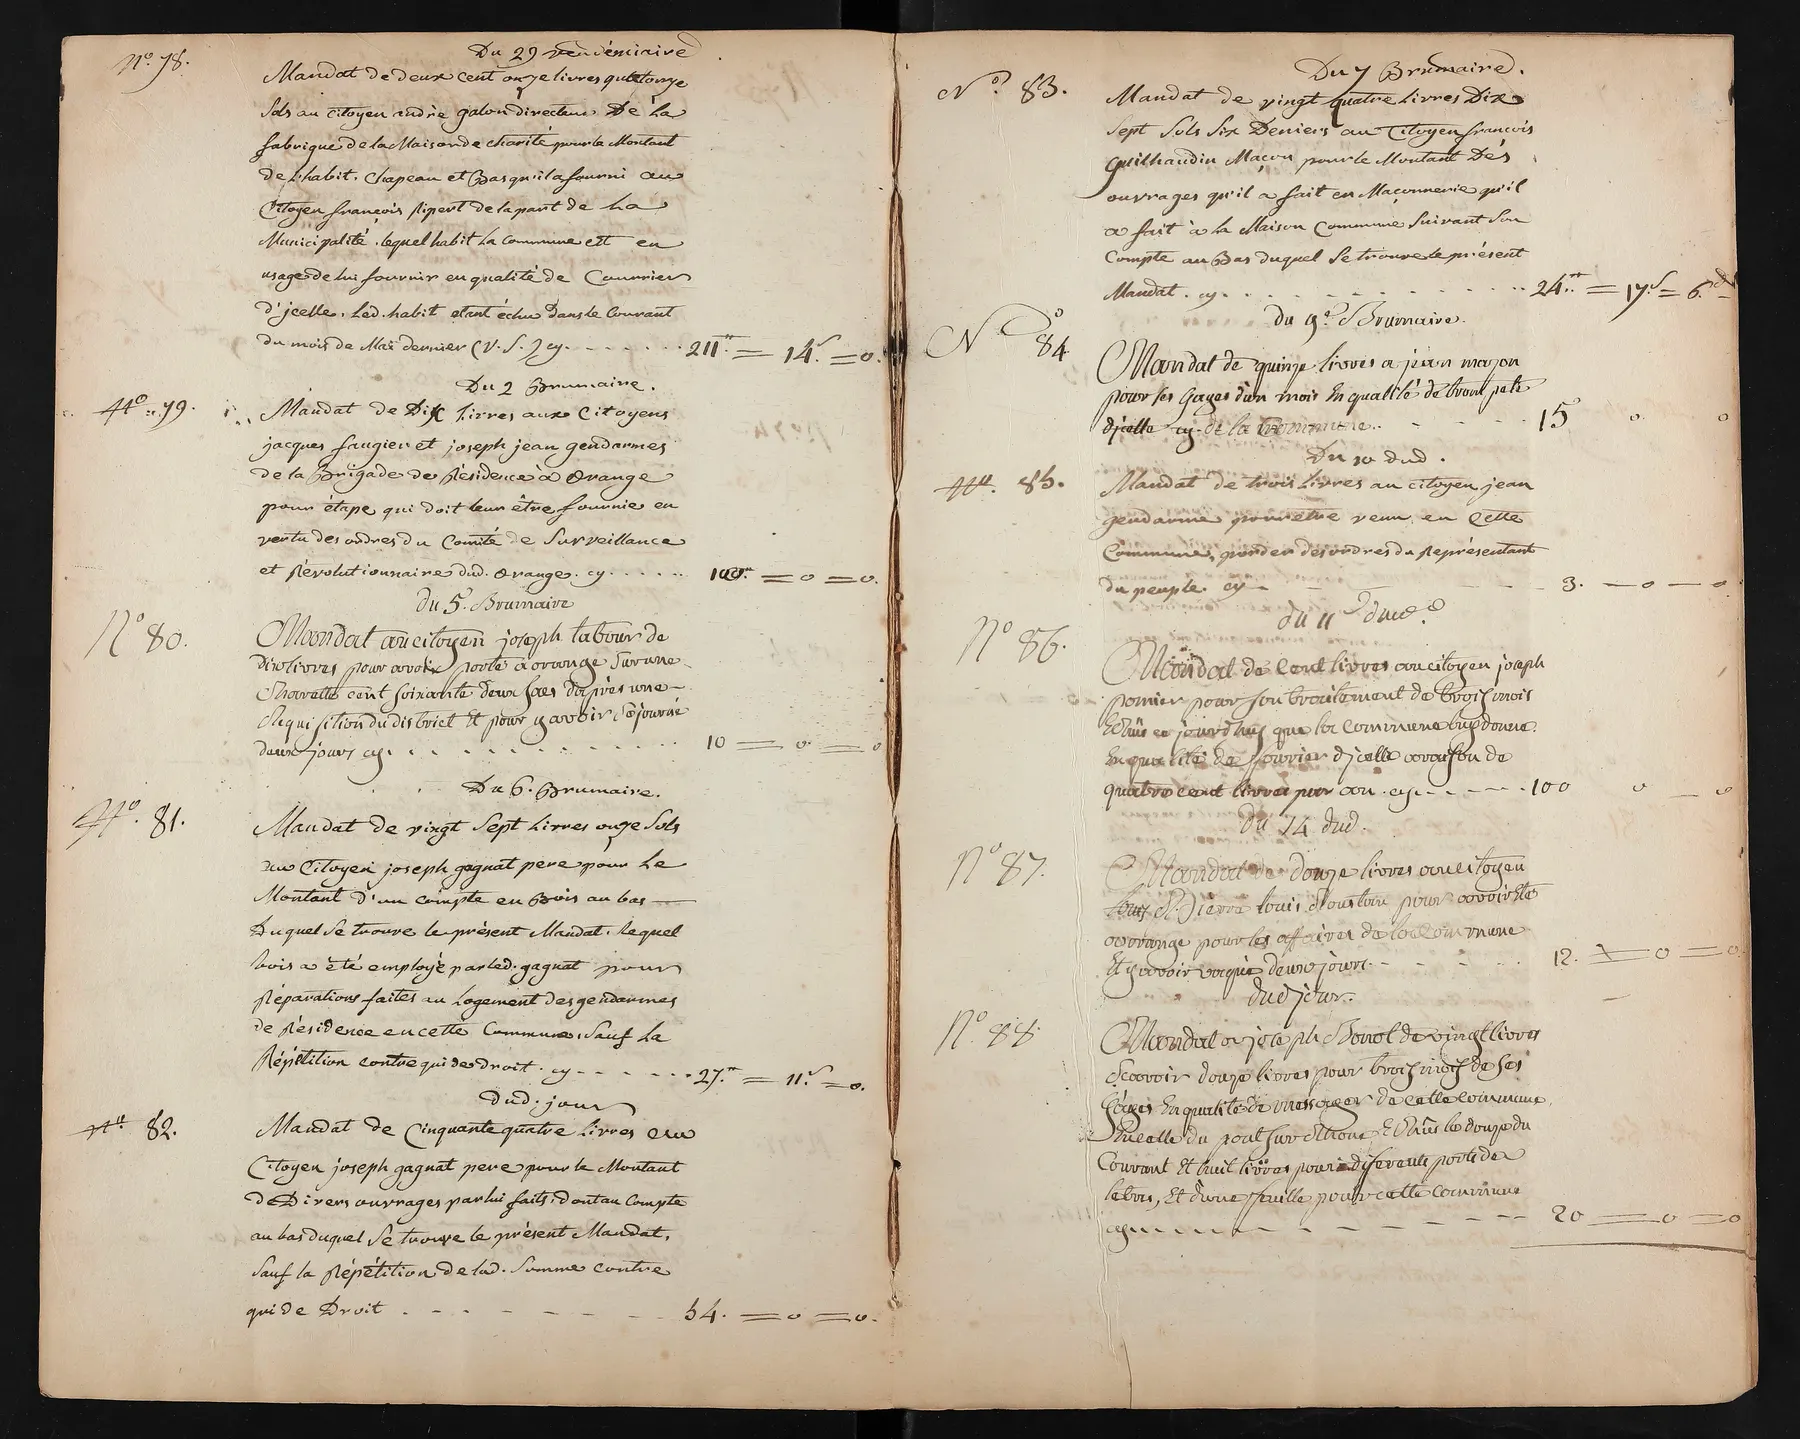 Du 29 vendémiaire
N.º 78.
Mandat de deux cent onze livres quatorze
Sols au citoyen andré galon directeur De La
fabrique de la Maison de charité pour le Montant
de l'habit. Chapeau et Bas qu'il a fourni au
Citoyen françois Ripert de la part de La
Municipalité. lequel habit La Commune est en
usage de lui fournir en qualité de Courrier
d'jcelle. Led. habit etant échu Dans le Courant
du mois de Mai dernier (V. S.) cy. . . . . . 211.tt = 14.s = 0.
Du 2 Brumaire.
N.º 79.
Mandat de Dix Livres aux Citoyens
jacques faugier et joseph jean gendarmes
de la Brigade de Résidence à Orange
pour étape qui doit leur être fournie en
vertu des ordres du Comité de Surveillance
et Révolutionnaire dud. Orange. cy. . . . . . 10 0.tt = 0 = 0.
du 5. Brumaire
Nº 80.
Mandat au citoyen joseph tabour de
dix livres pour avoir porté a orange sur une
Charette cent soixante deux sacs d'après une
Requisition du district Et pour y avoir Séjourné
deux jours cy. . . . . . . . . . 10 = 0 = 0
Du 6. Brumaire.
Nº. 81.
Mandat de vingt Sept Livres onze Sols
au Citoyen joseph gagnat pere pour Le
Montant d'un compte en Bois au bas
Duquel Se trouve le présent Mandat. Lequel
bois a été employé par led. gagnat pour
Réparations faites au Logement des gendarmes
de Résidence en cette Commune. Sauf La
Répétition contre qui de droit. cy - - . . . . 27.tt = 11.s = 0.
dud. jour
Nº 82.
Mandat de Cinquante quatre Livres au
Citoyen joseph gagnat pere pour le Montant
de Divers ouvrages par lui faits. dont au Compte
au bas duquel Se trouve le présent Mandat.
Sauf la Répétition de lad. Somme contre
qui de Droit . - - - - - - 54. = 0 = 0.
Du 7 Brumaire.
N.º 83.
Mandat de vingt quatre Livres Dix
Sept Sols Six Deniers au Citoyen françois
Guilhaudin Maçon pour le Montant Dés
ouvrages qu'il a fait en Maçonnerie qu'il
a fait à la Maison Commune Suivant Son
Compte au Bas duquel Se trouve le présent
Mandat. cy. . . . . . . . . . 24.tt = 17.s = 6.d
du 9.e Brumaire.
Nº 84
Mandat de quinze livres a jean mazon
pour les Gages d'un mois En qualité de trompete
d'jcelle cy. de la Commune . . - - - . 15 0 0
Du 10 dud.
Nº. 85.
Mandat de trois Livres au citoyen jean
gendarme pour être venu en Cette
Commune, porter des ordres du Représentant
du peuple. cy - - - - 3. - 0 - 0
du 11 dud.
Nº 86.
Mandat de Cent livres au citoyen joseph
pour son traitement de trois mois
Echûs ce jourdhuy que la Commune luy donne
En qualité de d'jcelle a raison de
quatre cent livres par an. cy. - - - - . 100 0 - 0
du 14 dud.
Nº 87.
Mandat de douze livres au citoyen
Louis pour avoir Eté
a orange pour les affaires de la Commune
Et y avoir vaqué deux jours. - - - - 12. = 0 = 0
dud jour.
Nº. 88.
Mandat a joseph de vingt livres
Scavoir douze livres pour trois mois de Ses
Gages En qualité de messager de cette commune
a celle du pont sur Echûs le douze du
Courant Et huit livres pour differents ports de
lettres, Et d'une feuille pour cette Commune
cy - - - - - - - - 20 = 0 = 0